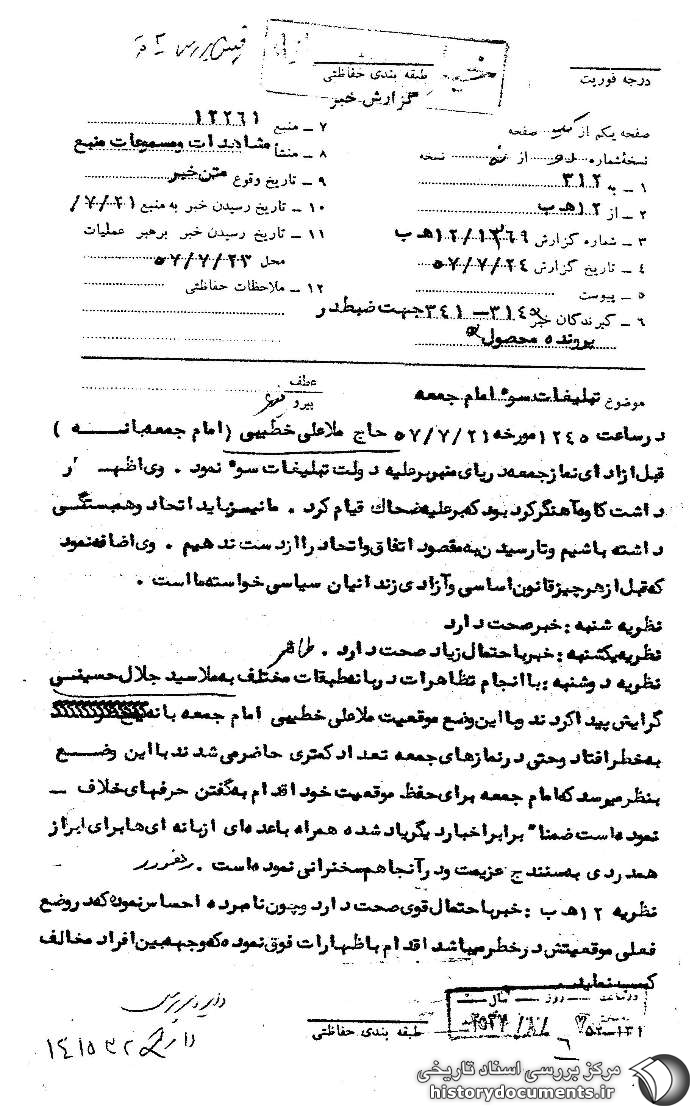 درجه فوریت
طبقه بندی حفاظتی
گزارش خبر
صفحه یکم از یک صفحه
نسخه شماره از نسخه
۱ ـ به ۳۱۲
۲ ـ از ۱۲ ه‍ ب
۳ ـ شماره گزارش ۱۲/۱۳۶۹ ه‍ ب
۴ ـ تاریخ گزارش ۵۷/۷/۲۴
۵ ـ پیوست
۶ ـ گیرندگان خبر ۳۱۴ ـ ۳۴۱ جهت ضبط در
پرونده محصول
۷ ـ منبع ۱۲۲۶۱
۸ ـ منشأ مشاهدات و مسموعات منبع
۹ ـ تاریخ وقوع متن خبر
۱۰ ـ تاریخ رسیدن خبر به منبع ۷/۲۱/
۱۱ ـ تاریخ رسیدن خبر برهبر عملیات
محل ۵۷/۷/۲۳
۱۲ ـ ملاحظات حفاظتی
موضوع تبلیغات سوء امام جمعه
عطف
پیرو
در ساعت ۱۲۴۵ مورخه ۵۷/۷/۲۱ حاج ملاعلی خطیبی (امام جمعه بانه)
قبل از ادای نماز جمعه در بای منبر برعلیه دولت تبلیغات سوء نمود . وی اظهار
داشت کاوه آهنگر کرد بود که برعلیه ضحاک قیام کرد . ما نیز باید اتحاد و همبستگی
داشته باشیم و تا رسیدن به مقصود اتفاق و اتحاد را از دست ندهیم . وی اضافه نمود
که قبل از هر چیز قانون اساسی و آزادی زندانیان سیاسی خواسته ما است .
نظریه شنبه : خبر صحت دارد
نظریه یکشنبه : خبر با احتمال زیاد صحت دارد . طاهر
نظریه دوشنبه : با انجام تظاهرات در بانه طبقات مختلف به ملا سید جلال حسینی
گرایش پیدا کردند و با این وضع موقعیت ملاعلی خطیبی امام جمعه بانه
به خطر افتاد و حتی در نمازهای جمعه تعداد کمتری حاضر می شدند با این وضع
بنظر میرسد که امام جمعه برای حفظ موقعیت خود اقدام به گفتن حرفهای خلاف ـ
نموده است ضمناً برابر اخبار دیگر یاد شده همراه با عده ای از بانه ای ها برای ابراز
همدردی به سنندج عزیمت و در آنجا هم سخنرانی نموده است .
نظریه ۱۲ ه‍ ب : خبر با احتمال قوی صحت دارد و چون نامبرده احساس نموده که در وضع
فعلی موقعیتش در خطر میباشد اقدام باظهارات فوق نموده که وجهه بین افراد مخالف
کسب نماید
طبقه بندی حفاظتی
۱۴۱۵۳۲
مرکز بررسی اسناد تاریخی
historydocuments.ir